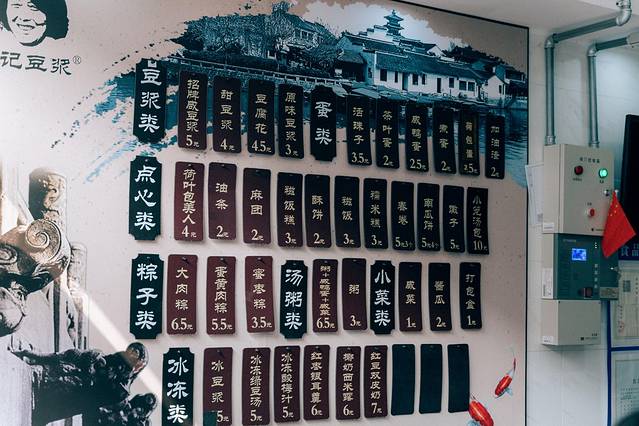 记豆浆®
豆浆类
招牌咸豆浆 5元
甜豆浆 4元
豆腐花 4.5元
原味豆浆 3元
蛋类
活珠子 3.5元
茶叶蛋 2元
咸鸭蛋 2.5元
煮蛋 2元
荷包蛋 2.5元
加油渣 2元
点心类
荷叶包美人 4元
油条 2元
麻团 2元
糍饭糕 3元
酥饼 2元
糍饭 3元
糯米糕 3元
麦米 5元3个
南瓜饼 5元4个
馓子 5元
小笼汤包 10元
粽子类
大肉粽 6.5元
蛋黄肉粽 5.5元
蜜枣粽 3.5元
汤粥类
粥+咸鸭蛋+咸菜 6.5元
粥 3元
小菜类
咸菜 1元
酱瓜 2元
打包盒 1元
冰冻类
冰豆浆 5元
冰冻绿豆汤 5元
冰冻酸梅汁 5元
红枣银耳羹 6元
椰奶西米露 6元
红豆双皮奶 7元